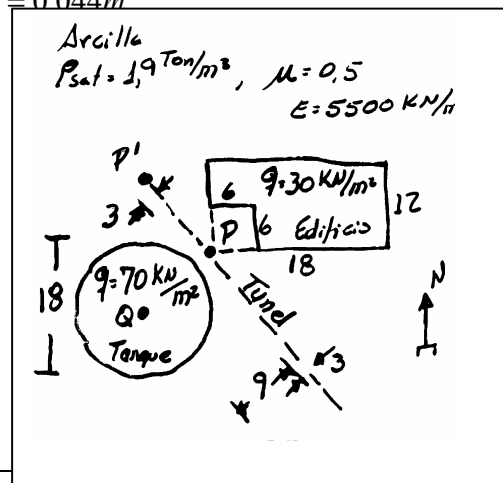 = 0.044m
Arcilla
ρsat = 1,9 Ton/m³, μ = 0,5
E = 5500 KN/
P'
6
q=30 KN/m²
12
3
P
6
Edificio
18
18
q=70 KN/m²
Q
Tanque
Tunel
N
3
9